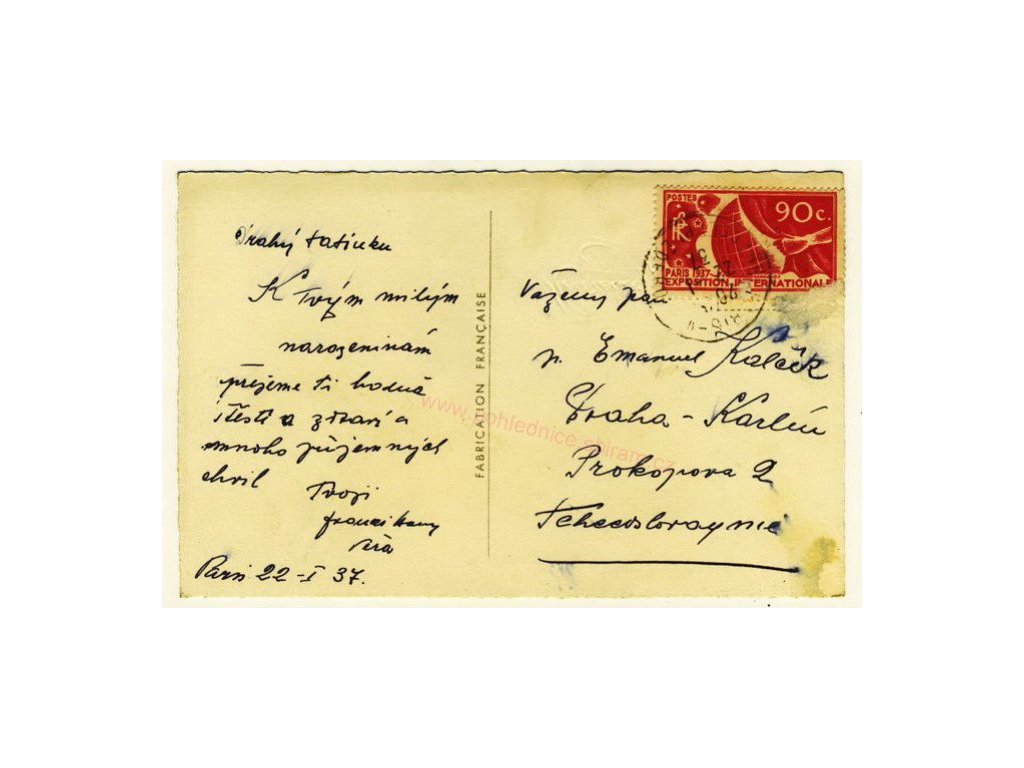 Drahý tatínku
K Tvým milým
narozeninám
přejeme ti hodně
štěstí a zdraví a
mnoho příjemných
chvil
Tvoji
Věra
Paris 22-I 37.
FABRICATION FRANÇAISE
POSTES
RF
90c.
PARIS 1937
EXPOSITION INTERNATIONALE
Vážený pán
p. Emanuel
Praha - Karlín
Prokopova 2
Tchecoslovaquie
www.pohlednice-sbiram.cz